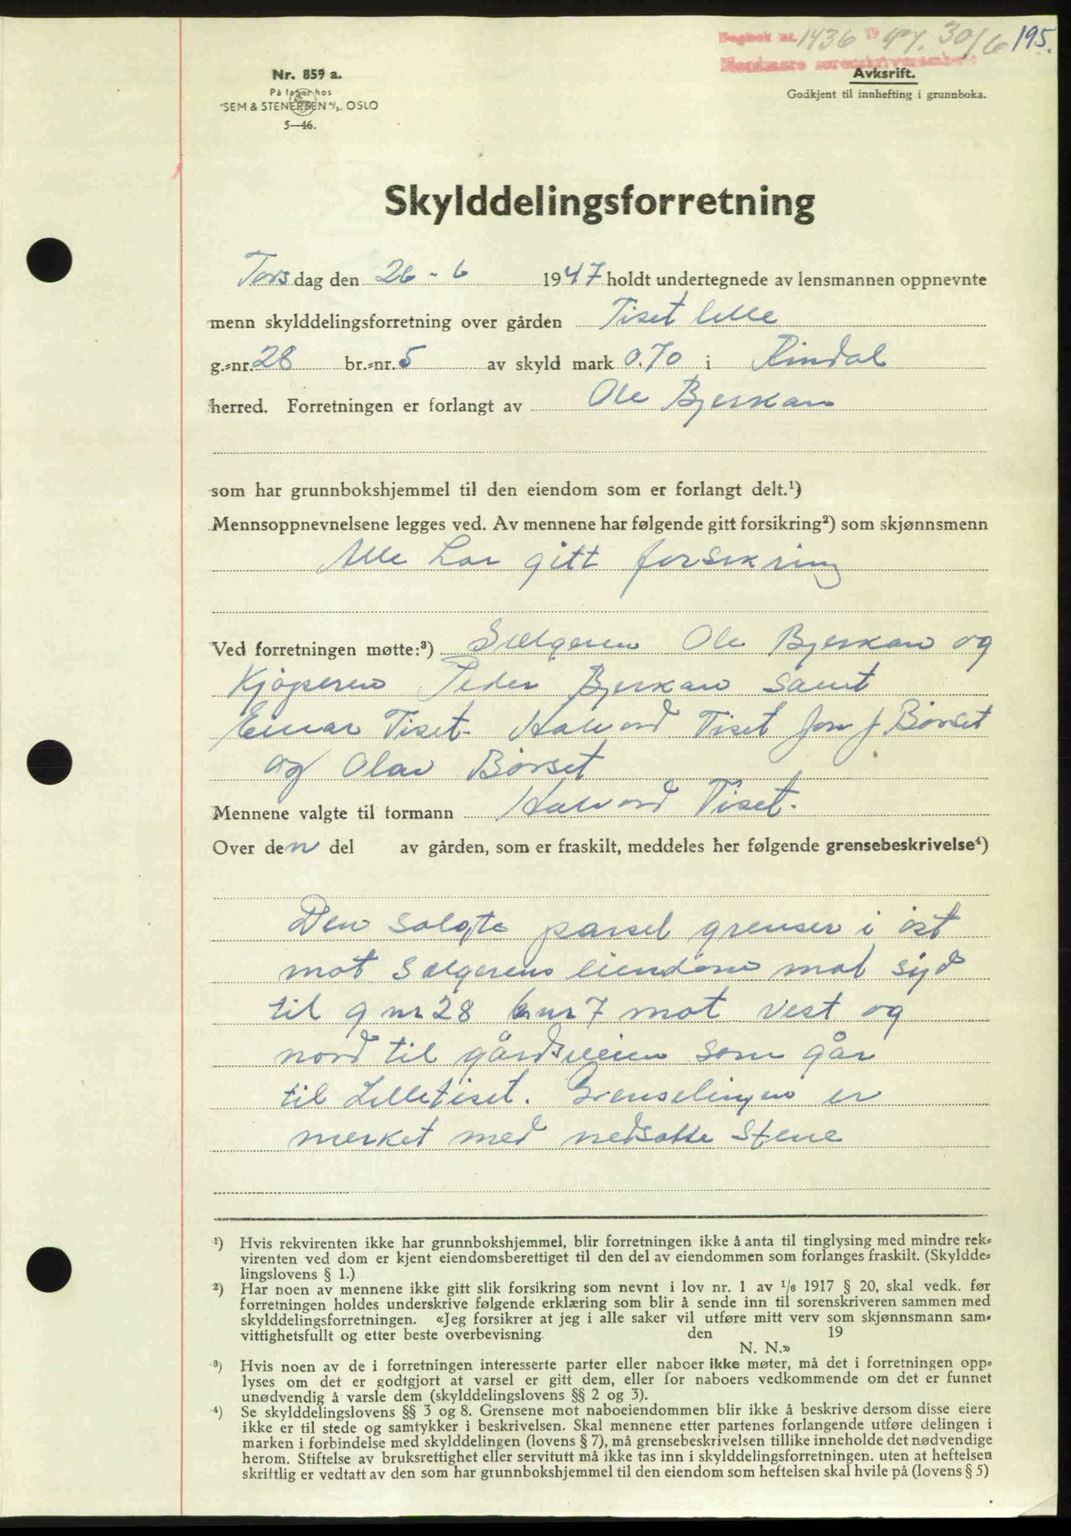 Dagbok nr. 1436 1947. 30/6 195.
Nordmøre sorenskriverembete
Nr. 859 a.
På lager hos
SEM & STENERSEN A/S. OSLO
5—46.
Avksrift.
Godkjent til innhefting i grunnboka.
Skylddelingsforretning
Torsdag den 26 - 6 1947 holdt undertegnede av lensmannen oppnevnte
menn skylddelingsforretning over gården Tiset lille
g.-nr. 28 br.-nr. 5 av skyld mark 0.70 i Rindal
herred. Forretningen er forlangt av Ole Bjerkan
som har grunnbokshjemmel til den eiendom som er forlangt delt.¹)
Mennsoppnevnelsene legges ved. Av mennene har følgende gitt forsikring²) som skjønnsmenn
Alle har gitt forsikring
Ved forretningen møtte:³) Sælgeren Ole Bjerkan og
Kjøperen Peder Bjerkan samt
Einar Tiset. Halvord Tiset Jon J Børset
og Olav Børset
Mennene valgte til formann Halvord Tiset.
Over den del av gården, som er fraskilt, meddeles her følgende grensebeskrivelse⁴)
Den solgte parsel grenser i øst
mot Sælgerens eiendom mot syd
til g nr 28 b nr 7 mot vest og
nord til gårdsveien som går
til Lilletiset. Grenselinjen er
merket med nedsatte stene
¹) Hvis rekvirenten ikke har grunnbokshjemmel, blir forretningen ikke å anta til tinglysing med mindre rek-
virenten ved dom er kjent eiendomsberettiget til den del av eiendommen som forlanges fraskilt. (Skyldde-
lingslovens § 1.)
²) Har noen av mennene ikke gitt slik forsikring som nevnt i lov nr. 1 av 1/6 1917 § 20, skal vedk. før
forretningen holdes underskrive følgende erklæring som blir å sende inn til sorenskriveren sammen med
skylddelingsforretningen. «Jeg forsikrer at jeg i alle saker vil utføre mitt verv som skjønnsmann sam-
vittighetsfullt og etter beste overbevisning den 19
N. N.»
³) Hvis noen av de i forretningen interesserte parter eller naboer ikke møter, må det i forretningen opp-
lyses om det er godtgjort at varsel er gitt dem, eller for naboers vedkommende om det er funnet
unødvendig å varsle dem (skylddelingslovens §§ 2 og 3).
⁴) Se skylddelingslovens §§ 3 og 8. Grensene mot naboeiendommen blir ikke å beskrive dersom disse eiere
ikke er til stede og samtykker i beskrivelsen. Skal mennene etter partenes forlangende utføre delingen i
marken i forbindelse med skylddelingen (lovens § 7), må grensebeskrivelsen tillike inneholde det nødvendige
herom. Stiftelse av bruksrettighet eller servitutt må ikke tas inn i skylddelingsforretningen. uten at heftelsen
skriftlig er vedtatt av den som har grunnbokshjemmel til den eiendom som heftelsen skal hvile på (lovens § 5)